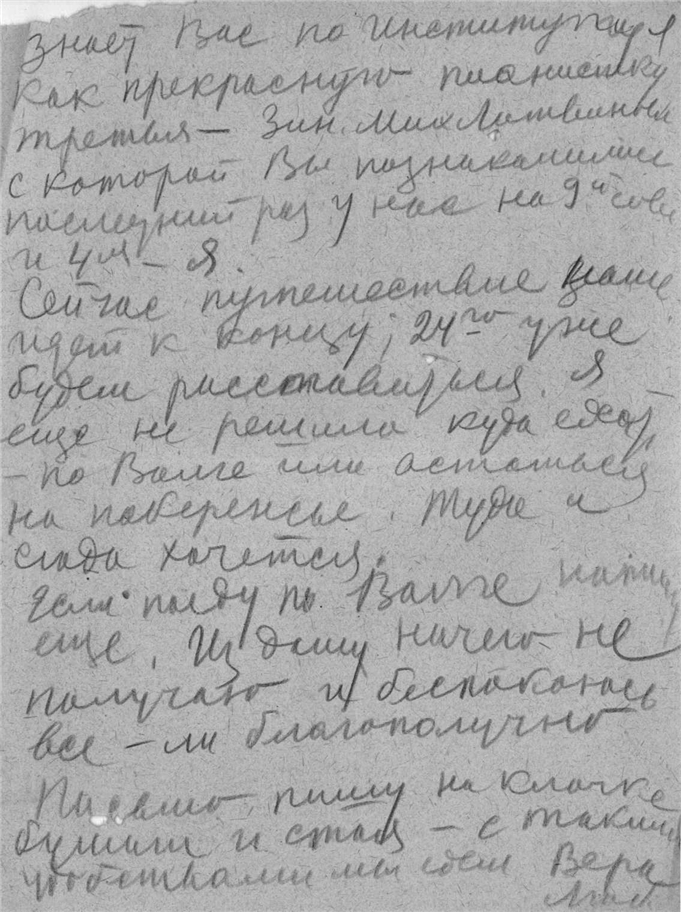 знает Вас по Институту
как прекрасную пианистку
третья — Зин. Мих Литвинова
с которой Вы познакомились
последний раз у нас на 9й
и 4ая — Я
Сейчас путешествие наше
идет к концу; 24го уже
будем расставаться. Я
еще не решила куда ехать
— по Волге или остаться
на побережье. Туда и
сюда хочется.
Если поеду по Волге напишу
еще. Из дому ничего не
получаю и беспокоюсь
все — ли благополучно
Письмо пишу на клочке
бумаги и стоя — с такими
удобствами мы едем Вера